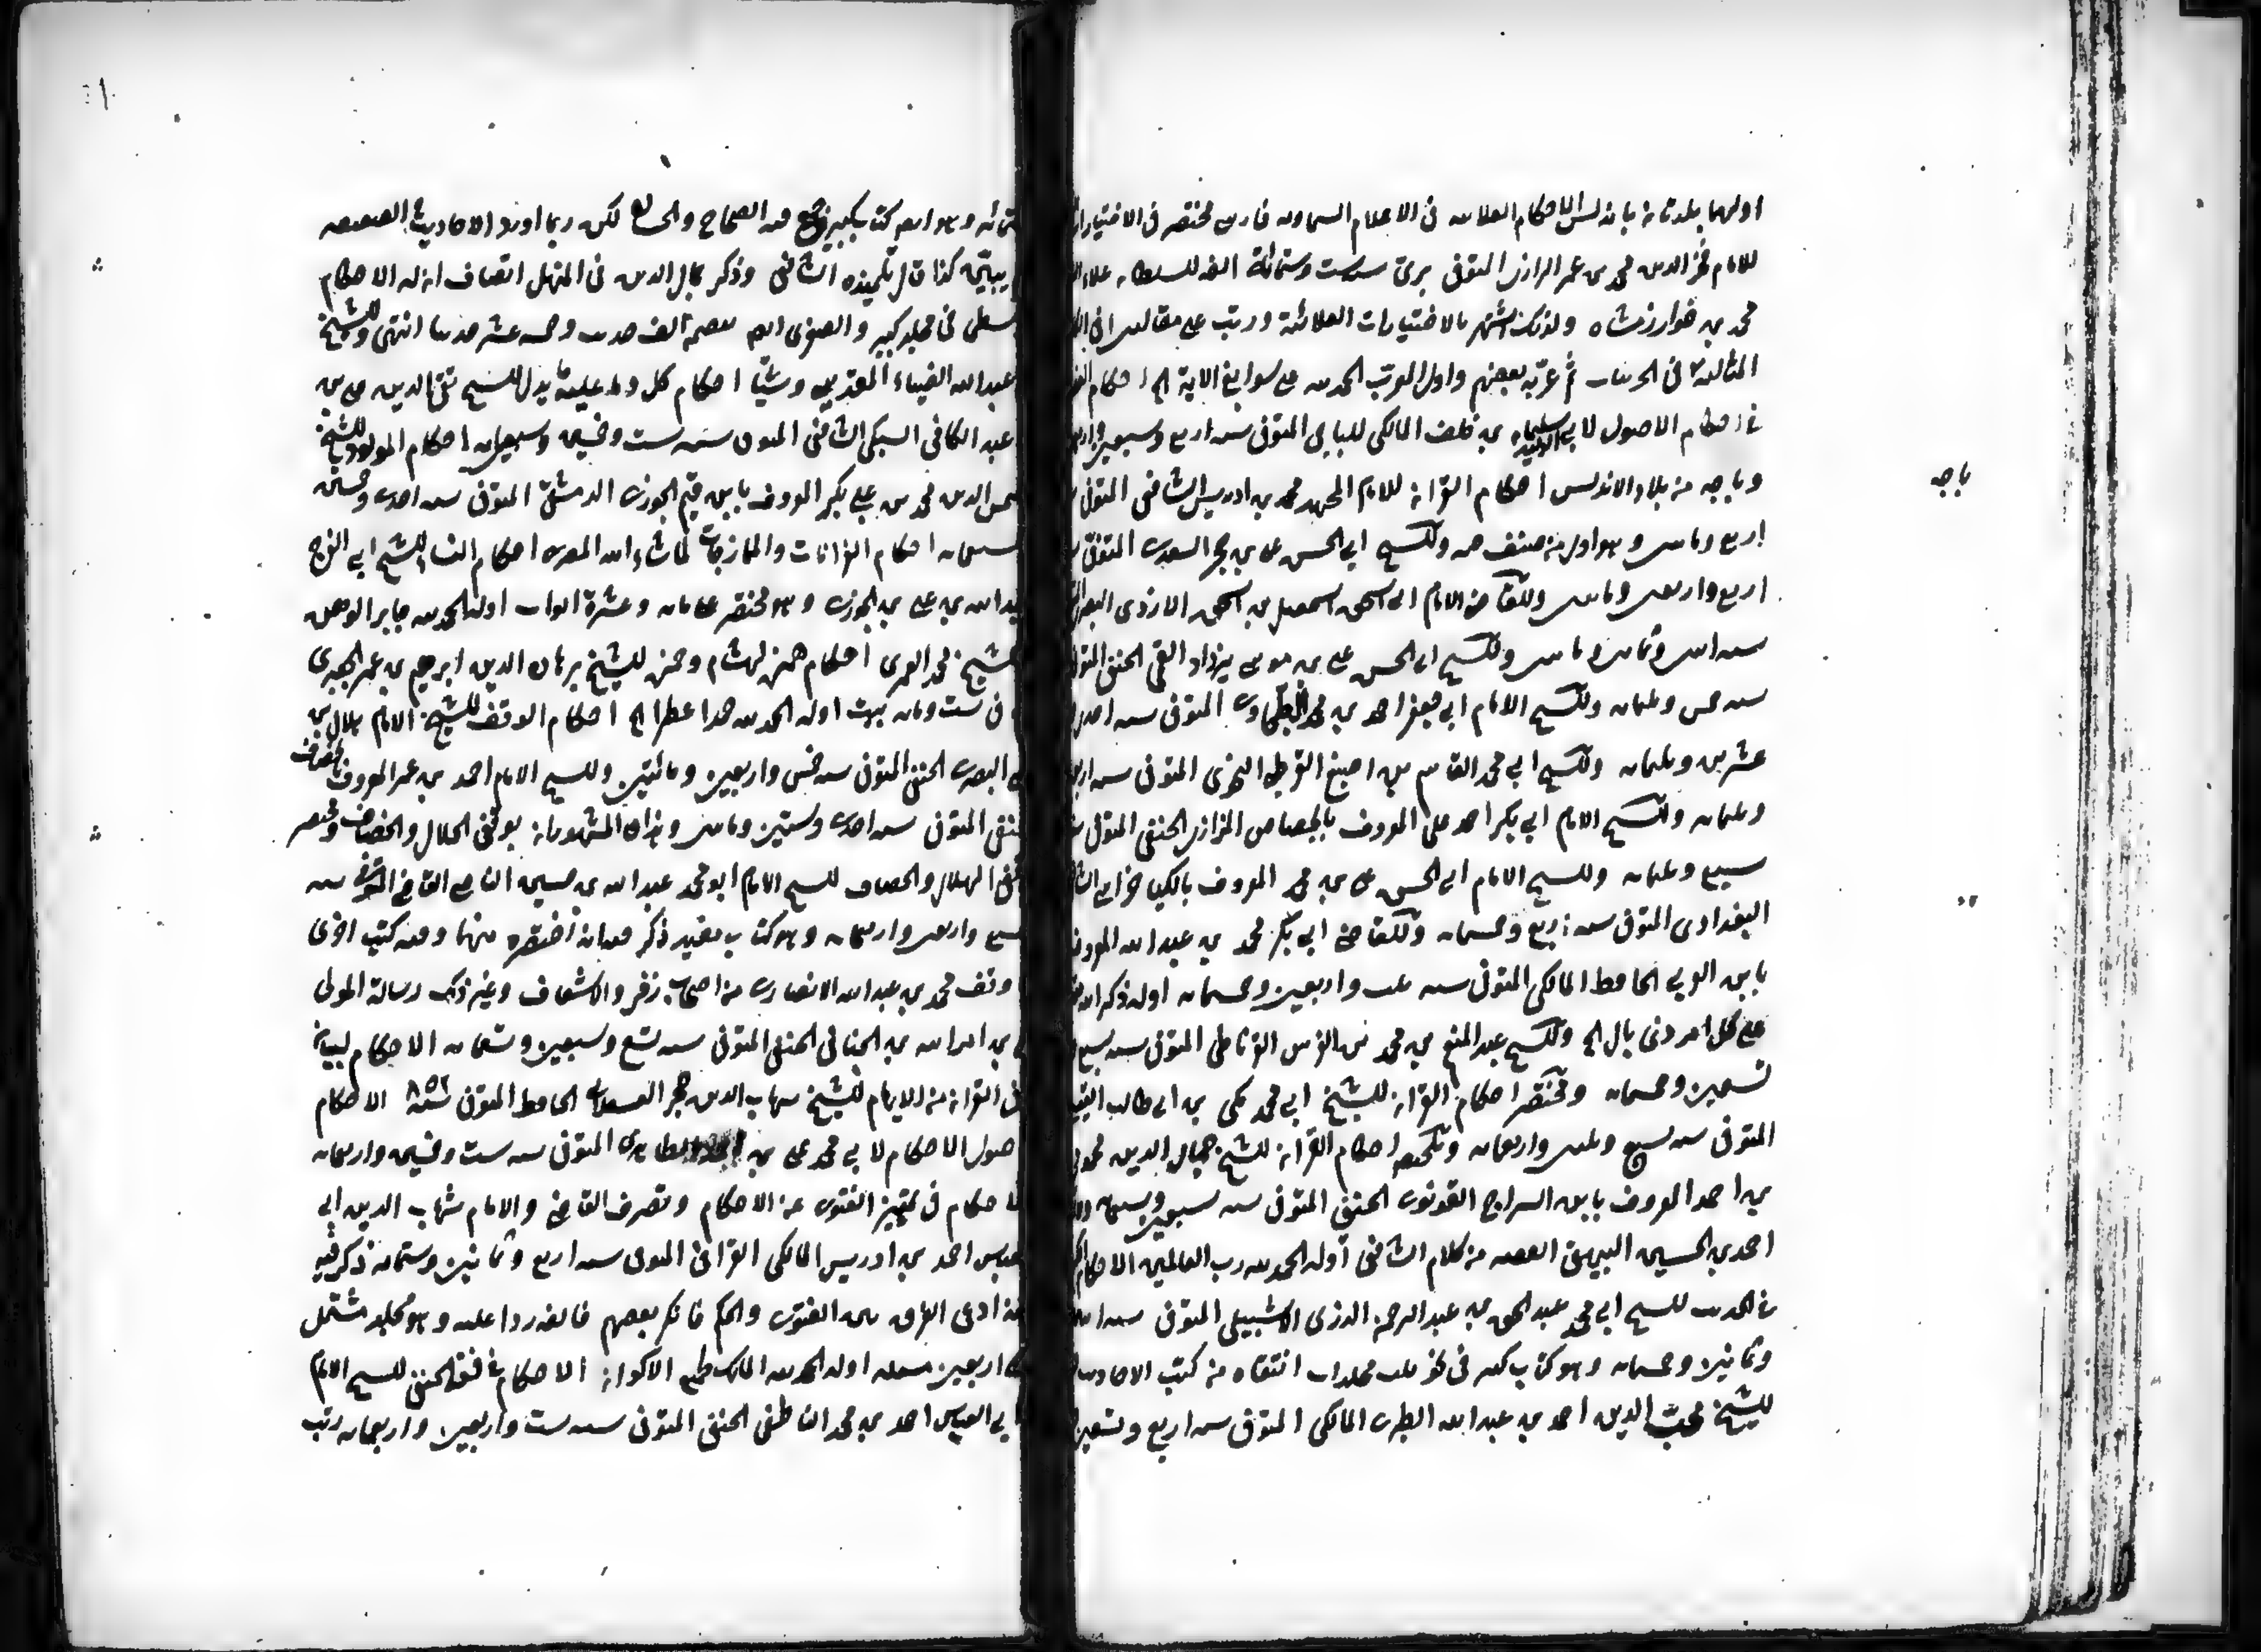 اولهما بلدتان بالاندلس الاحكام العلائيه فى الاعلام السماويه فارسى مختصر فى الاختيارات
للامام فخر الدين محمد بن عمر الرازى المتوفى سنة ست وستمائة الفه للسلطان علاء
محمد بن خوارزمشاه ولذلك اشتهر بالاختيارات العلائية ورتب على مقالتين
فى الجزئيات ثم عربه بعضهم واول المعرب الحمد لله على سوابغ الاية الخ احكام
فى احكام الاصول لابى الوليد سليمان بن خلف المالكى للباجى المتوفى سنه اربع وسبعين
وباجه من بلاد الاندلس احكام القران للامام المجتهد محمد بن ادريس الشافعى المتوفى
اربع ومائتين وهو اول من صنف فيه وللشيخ ابى الحسن على بن حجر السعدى المتوفى
اربع واربعين ومائتين وللقاضى الامام ابى اسحق اسمعيل بن اسحق الازدى البصرى
سنه اثنين وثمانين ومائتين وللشيخ ابى الحسن على بن موسى يزداد القمى الحنفى المتوفى
سنه خمس وثلثمائه وللشيخ الامام ابى جعفر احمد بن محمد الطحاوى المتوفى سنه احدى
عشرين وثلثمائه وللشيخ ابى محمد القاسم بن اصبغ القرطبى النحوى المتوفى سنه اربعين
وثلثمائه وللشيخ الامام ابى بكر احمد على المعروف بالجصاص الرازى الحنفى المتوفى
سبعين وثلثمائه وللشيخ الامام ابى الحسن على بن محمد المعروف بالكيا خراسى
البغدادى المتوفى سنه اربع وخمسمائه وللقاضى ابى بكر محمد بن عبد الله المعروف
بابن العربى الحافظ المالكى المتوفى سنه ثلث واربعين وخمسمائه اوله ذكر الله
على كل امر ذى بال الخ وللشيخ عبد المنعم بن محمد بن الفرس الغرناطى المتوفى سنه سبع
تسعين وخمسمائه ومختصر احكام القران للشيخ ابى محمد مكى بن ابى طالب القيسى
المتوفى سنه سبع وثلثين واربعمائه وتلخيص احكام القران للشيخ جمال الدين محمود
بن احمد المعروف بابن السراج القونوى الحنفى المتوفى سنه سبعين وسبعمائه
احمد بن الحسين البيهقى لفقه من كلام الشافعى اوله الحمد لله رب العالمين الاحكام
فى الحديث للشيخ ابى محمد عبد الحق بن عبد الرحمن الازدى الاشبيلى المتوفى سنه اثنين
وثمانين وخمسمائه وهو كتاب كبير فى نحو ثلث مجلدات انتقاه من كتب الاحاديث
للشيخ محب الدين احمد بن عبد الله الطبرى المالكى المتوفى سنه اربع وتسعين
باجه
وستمائه وهو ايضا كتاب كبير جمع فيه الصحاح والحسان لكن ربما اورد الاحاديث الضعيفه
ولم يبين كذا قال تلميذه الشافعى وذكر جمال الدين فى المنهل الصافى ان له الاحكام
الوسطى فى مجلد كبير والصغرى ايضا يتضمن الف حديث وخمسه عشر حديثا انتهى وللشيخ
عبد الله الضياء المقدسى وشيئا احكام كل وما عليه يدل للشيخ تقى الدين على بن
عبد الكافى السبكى الشافعى المتوفى سنه ست وخمسين وسبعمائه احكام المولود للشيخ
شمس الدين محمد بن ابى بكر المعروف بابن قيم الجوزى الدمشقى المتوفى سنه احدى وخمسين
وسبعمائه احكام القرانات والممازجات لماشاء الله المصرى احكام النساء للشيخ ابى الفرج
عبد الله بن على بن الجوزى وهو مختصر على مائه وعشرة ابواب اوله الحمد لله جابر الوهن
للشيخ محمد العمرى احكام همز لهشام وحمزة للشيخ برهان الدين ابرهيم بن عمر الجعبرى
فى ست ومائه بيت اوله الحمد لله حمدا عطرا الخ احكام الوقف للشيخ الامام هلال بن
يحيى البصرى الحنفى المتوفى سنه خمس واربعين ومائتين وللشيخ الامام احمد بن عمر المعروف بالخصاف
الحنفى المتوفى سنه احدى وستين ومائتين وهذان المشهوران بوقفى الهلال والخصاف ومختصر
وقفى الهلال والخصاف للشيخ الامام ابو محمد عبد الله بن حسين الناصحى القاضى المتوفى سنه
سبع واربعين واربعمائه وهو كتاب مفيد ذكر فيه انه اختصره منهما وفيه كتب اخرى
وقف محمد بن عبد الله الانصارى من اصحاب زفر والاسعاف وغير ذلك رسالة المولى
على بن امر الله بن الحنائى الحنفى المتوفى سنه تسع وسبعين وتسعمائه الاحكام لبيان
ما فى القران من الابهام للشيخ شهاب الدين حجر العسقلانى الحافظ المتوفى سنه ٨٥٢ الاحكام
لاصول الاحكام لابى محمد على بن احمد الظاهرى المتوفى سنه ست وخمسين واربعمائه
الاحكام فى تمييز الفتوى عن الاحكام وتصرف القاضى والامام شهاب الدين ابى
العباس احمد بن ادريس المالكى القرافى المتوفى سنه اربع وثمانين وستمائه ذكر فيه
انه ادعى الفرق بين الفتوى والحكم فانكر بعضهم فالفه ردا عليه وهو مجلد مشتمل
على اربعين مسئله اوله الحمد لله المالك جميع الاكوان الاحكام فى فقه الحنفى للشيخ الامام
ابى العباس احمد بن محمد الناطفى الحنفى المتوفى سنه ست واربعين واربعمائه رتب